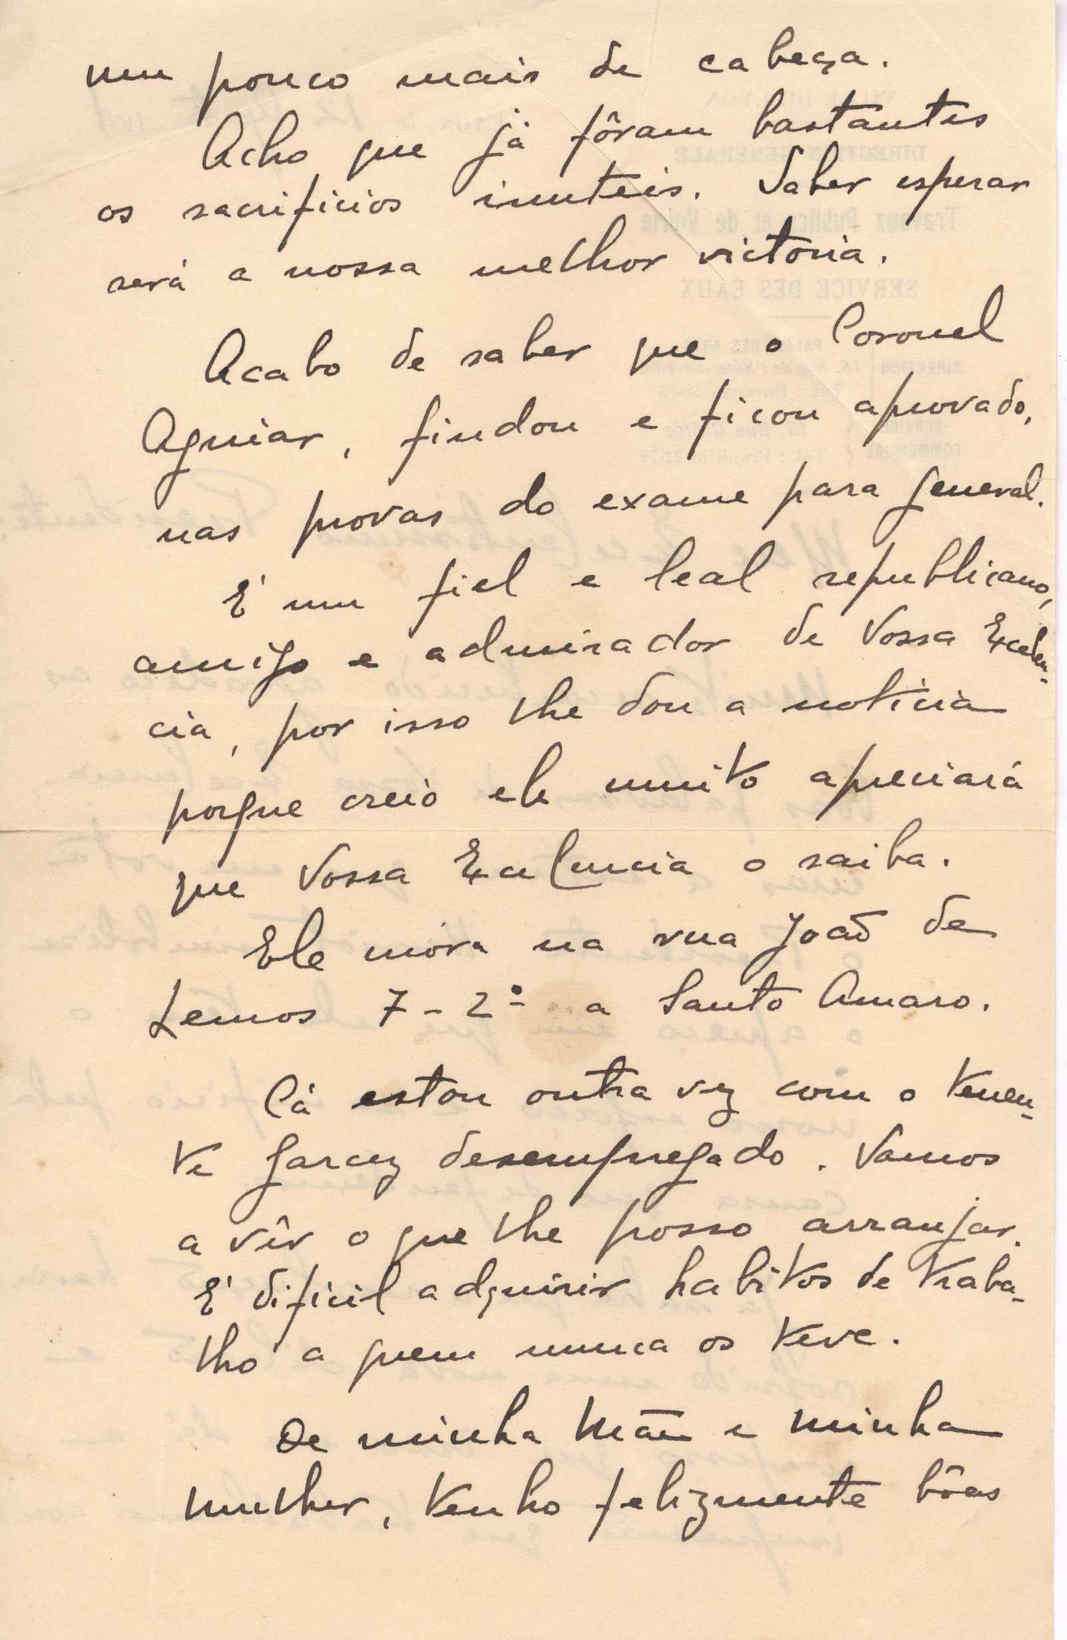 um pouco mais de cabeça.
Acho que já fôram bastantes
os sacrificios inuteis. Saber esperar
será a nossa melhor victoria.
Acabo de saber que o Coronel
Aguiar, findou e ficou aprovado,
nas provas do exame para general.
E' um fiel e leal republicano,
amigo e admirador de Vossa Excelen-
cia, por isso lhe dou a noticia
porque creio ele muito apreciará
que Vossa Excelencia o saiba.
Ele mora na rua João de
Lemos 7-2º a Santo Amaro.
Cá estou outra vez com o Tenen-
te Garcez desempregado. Vamos
a vêr o que lhe posso arranjar.
E' dificil adquirir habitos de traba-
lho a quem nunca os teve.
De minha Mãe e minha
mulher, tenho felizmente bôas